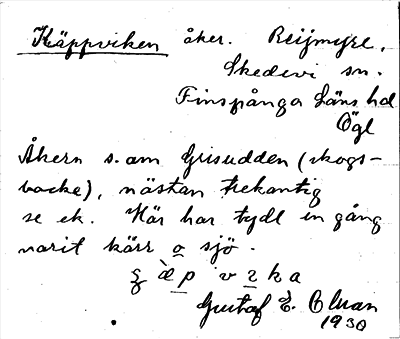 Käppviken åker. Reijmyre,
Skedevi sn.
Finspånga Läns hd
Ögl
Åkern s. om Grisudden (skogs-
backe), nästan trekantig
se ek. Här har tydl en gång
varit kärr o sjö.
Gustaf E.
1930